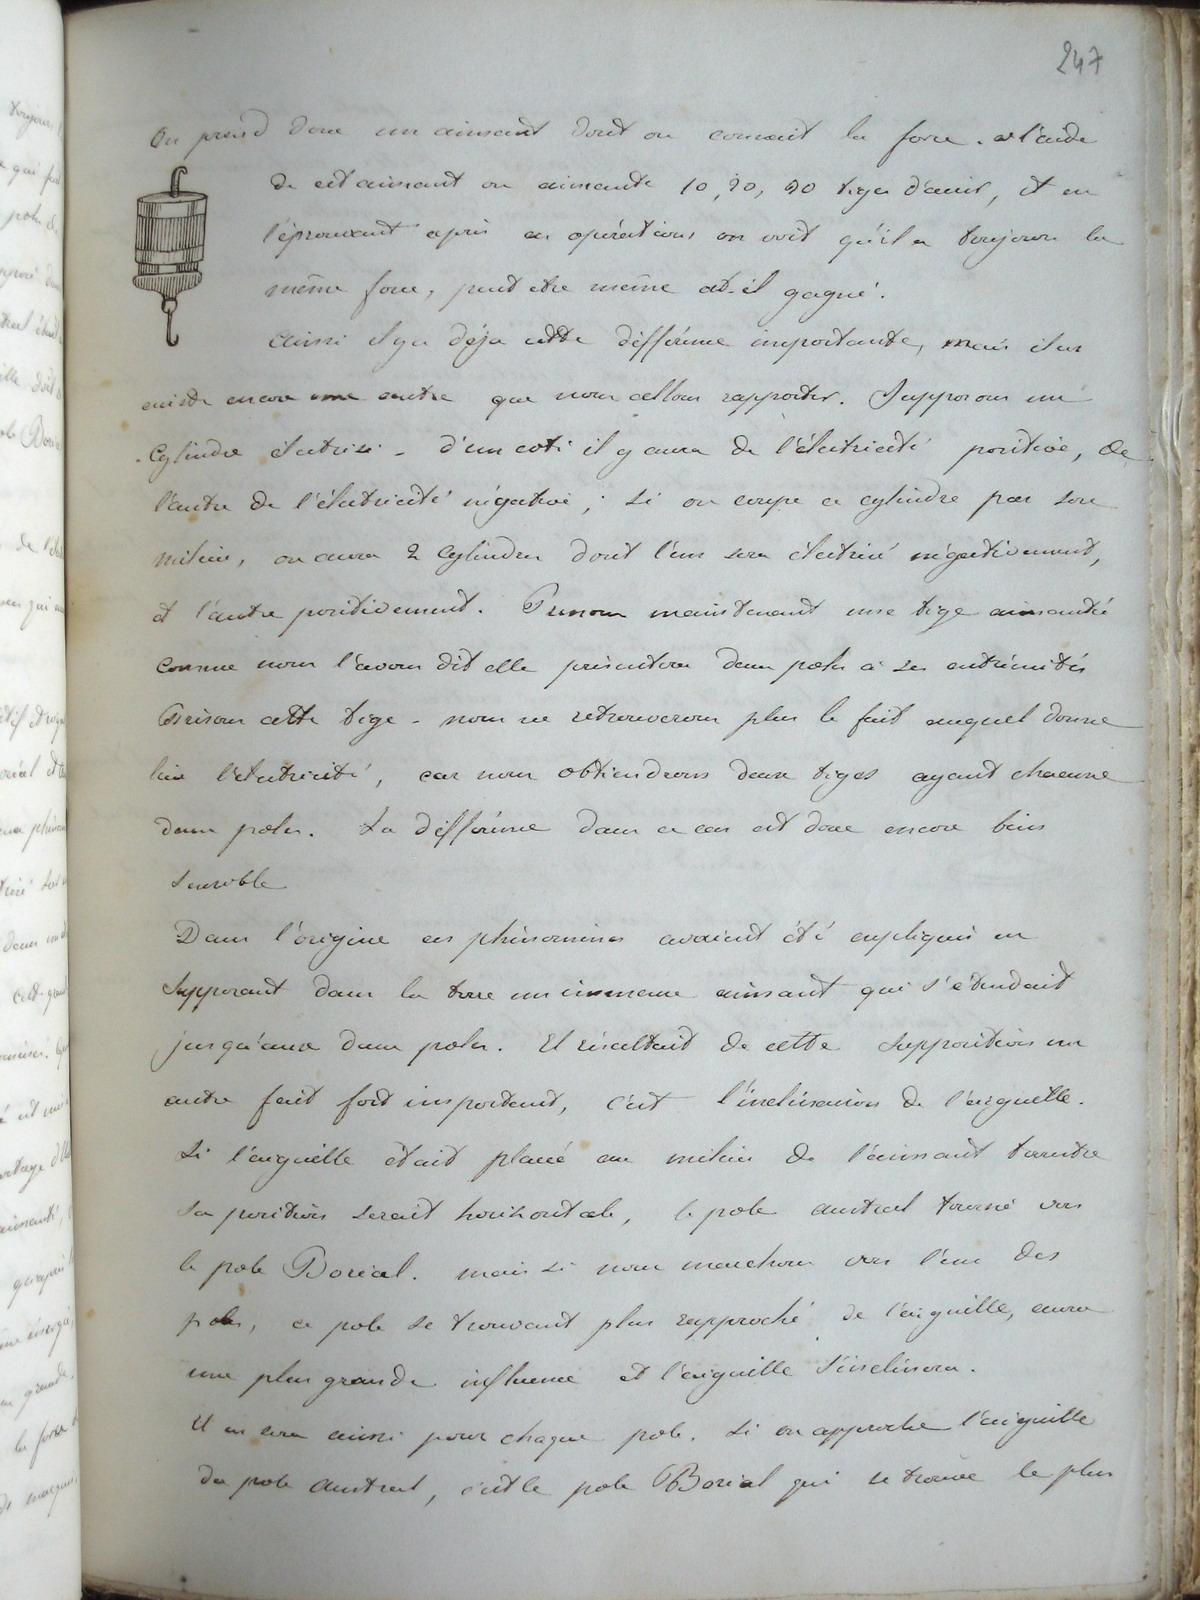 247
On prend donc un aimant dont on connait la force. à l'aide
de cet aimant on aimante 10, 20, 30 tiges d'acier, et en
l'éprouvant après ces opérations on voit qu'il a toujours la
même force, peut etre même at-il gagné.
ainsi il y a déja cette différence importante, mais il en
existe encore une autre que nous allons rapporter. Supposons un
Cylindre electrisé - d'un coté il y aura de l'électricité positive, de
l'autre de l'électricité négative ; si on coupe ce cylindre par son
milieu, on aura 2 Cylindres dont l'un sera électrisé négativement,
et l'autre positivement. Prenons maintenant une tige aimantée
comme nous l'avons dit elle présentera deux poles à ses extrémités
Brisons cette tige - nous ne retrouverons plus le fait auquel donne
lieu l'électricité, car nous obtiendrons deux tiges ayant chacune
deux poles. La différence dans ce cas est donc encore bien
sensible
Dans l'origine ces phénomènes avaient été expliqués en
supposant dans la terre un immense aimant qui s'étendait
jusqu'aux deux poles. Il résultait de cette supposition un
autre fait fort important, c'est l'inclinaison de l'aiguille.
Si l'aiguille était placée au milieu de l'aimant terrestre
sa position serait horizontale, le pole austral tourné vers
le pole Boréal. mais si nous marchons vers l'un des
poles, ce pole se trouvant plus rapproché de l'aiguille, aura
une plus grande influence et l'aiguille s'inclinera.
Il en sera ainsi pour chaque pole. Si on approche l'aiguille
du pole Austral, c'est le pole Boréal qui se trouve le plus